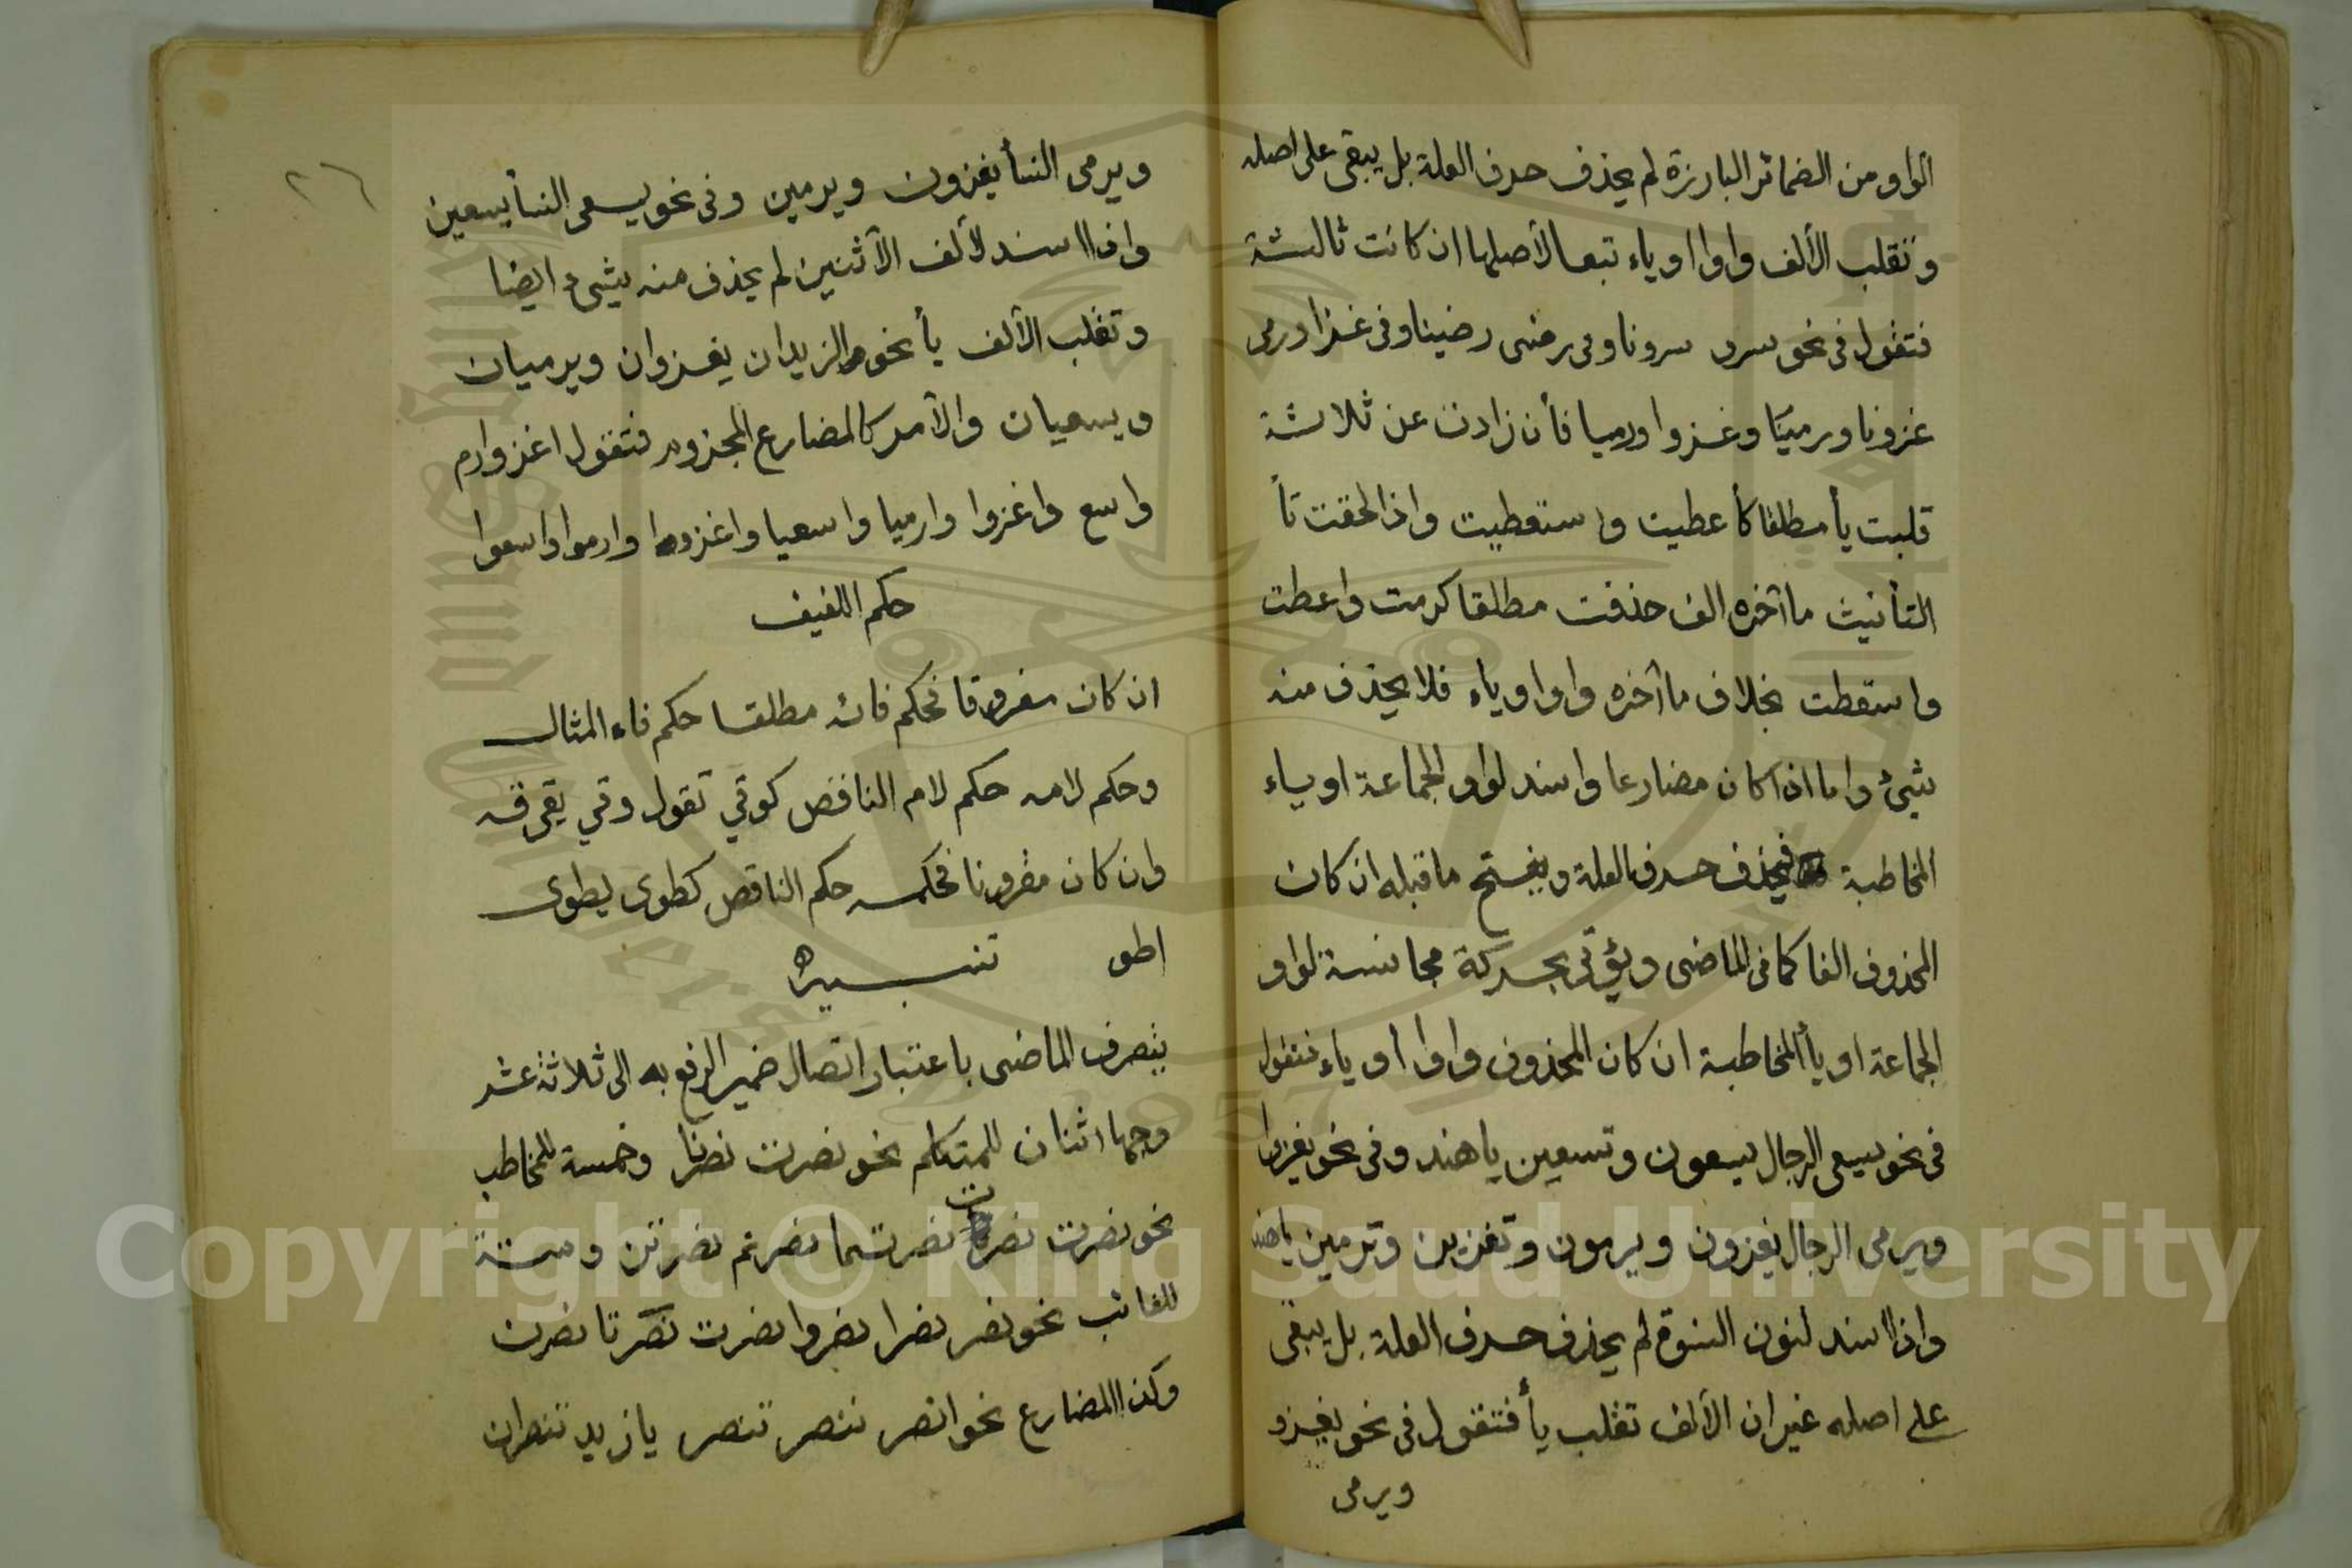 الواو من الضمائر البارزة لم يحذف حرف العلة بل يبقى على اصله
وتقلب الألف واوا او ياء تبعا لأصلها ان كانت ثالثة
فتقول فى نحو سرو سرونا وفى رضى رضينا وفى غزا ورمى
غزونا ورمينا وغزوا ورميا فأن زادت عن ثلاثة
قلبت يأ مطلقا كأعطيت واستعطيت واذا لحقت تأ
التأنيث ما آخره الف حذفت مطلقا كرمت واعطت
واستعطت بخلاف ما آخره واو او ياء فلا يحذف منه
شئ واما اذا كان مضارعا واسند لواو الجماعة او ياء
المخاطبة فيحذف حرف العلة ويفتح ما قبله ان كان
المحذوف الفا كما فى الماضى ويؤتى بحركة مجانسة لواو
الجماعة او يأ المخاطبة ان كان المحذوف واوا أو ياء فتقول
فى نحو يسعى الرجال يسعون وتسعين يا هند وفى نحو يغزوا
ويرمى الرجال يغزون ويرمون وتغزين وترمين يا هند
واذا اسند لنون النسوة لم يحذف حرف العلة بل يبقى
على اصله غير ان الألف تقلب يأ فتقول فى نحو يغزو
ويرمى
٢٦
ويرمى النسأ يغزون ويرمين وفى نحو يسعى النسأ يسعين
واذا اسند لألف الأثنين لم يحذف منه شىء ايضا
وتقلب الألف يأ نحو الزيدان يغزوان ويرميان
ويسعيان والأمر كالمضارع المجزوم فتقول اغز وارم
واسع واغزوا وارميا واسعيا واغزوا وارموا واسعوا
حكم اللفيف
ان كان مفروقا فحكم فائه مطلقا حكم فاء المثال
وحكم لامه حكم لام الناقص كوقي تقول وقي يقي قه
وان كان مقرونا فحكمه حكم الناقص كطوى يطوى
اطو تنبيه
يتصرف الماضى باعتبار اتصال ضمير الرفع به الى ثلاثة عشر
وجها اثنان للمتكلم نحو نصرت نصرنا وخمسة للمخاطب
نحو نصرت نصرت نصرتما نصرتم نصرتن وستة
للغائب نحو نصر نصرا نصروا نصرت نصرتا نصرن
وكذا المضارع نحو انصر ننصر تنصر يا زيد تنصران
Copyright © King Saud University